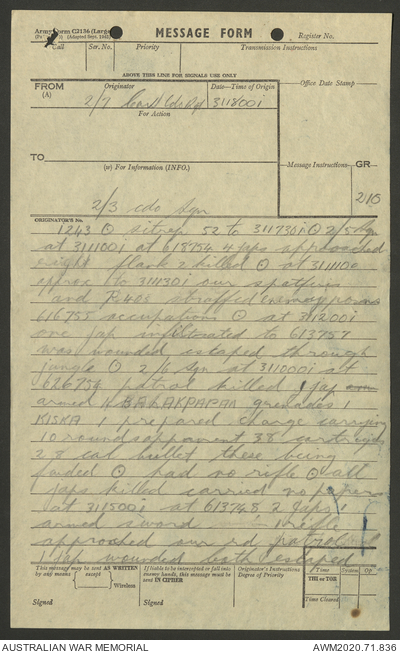 Army Form C2136 (Large)
MESSAGE FORM
Register No.
Call Ser. No. Priority Transmission Instructions
ABOVE THIS LINE FOR SIGNALS USE ONLY
FROM
(A)
Originator
Date—Time of Origin
Office Date Stamp
2/7 3118001
For Action
TO
(w) For Information (INFO.)
Message Instructions
GR
210
2/3 cdo Sqn
ORIGINATOR'S No.
1243 ⊙ sitrep 52 to 311730i ⊙ 2/5 Sqn
at 311100i at 613754 4 japs approached
right flank 2 killed ⊙ at 311100
approx to 311130i our spitfires
and P40s straffed enemy posns
616755 occupation ⊙ at 311200i
one jap infiltrated to 613757
was wounded escaped through
jungle ⊙ 2/6 Sqn at 311000i at
626754 patrol killed 1 jap
armed 11 BALAKPAPAN grenades 1
KISKA 1 prepared charge carrying
10 rounds apparent 38 cartridges
28 cal bullet these being
⊙ had no rifle ⊙ all
japs killed carried no papers
at 311500i at 613748 2 japs 1
armed sword 1 rifle
approached our rd patrol
1 jap wounded both escaped
This message may be sent AS WRITTEN
by any means (except) Wireless
Signed
If liable to be intercepted or fall into
enemy hands, this message must be
sent IN CIPHER
Signed
Originator's Instructions
Degree of Priority
Time System Op
THI or TOR
Time Cleared
AUSTRALIAN WAR MEMORIAL
AWM2020.71.836